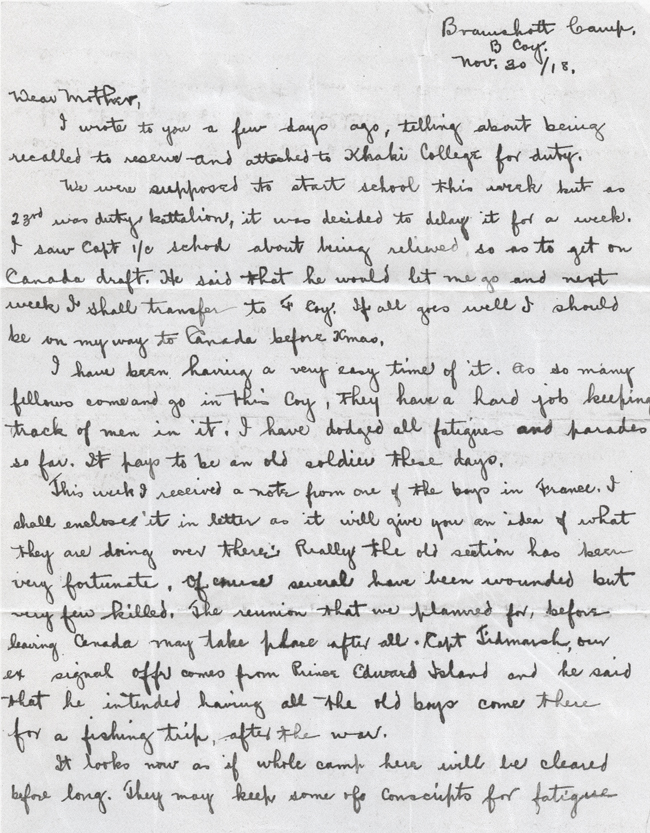 Bramshott Camp.
B Coy.
Nov. 30/18.
Dear Mother,
I wrote to you a few days ago, telling about being
recalled to reserve and attached to Khaki College for duty.
We were supposed to start school this week but as
23rd was duty battalion, it was decided to delay it for a week.
I saw Capt i/c school about being relieved so as to get on
Canada draft. He said that he would let me go and next
week I shall transfer to F Coy. If all goes well I should
be on my way to Canada before Xmas.
I have been having a very easy time of it. As so many
fellows come and go in this Coy, they have a hard job keeping
track of men in it. I have dodged all fatigues and parades
so far. It pays to be an old soldier these days.
This week I received a note from one of the boys in France. I
shall enclose it in letter as it will give you an idea of what
they are doing over there. Really the old section has been
very fortunate. Of course several have been wounded but
very few killed. The reunion that we planned for, before
leaving Canada may take place after all. Capt Tidmarsh, our
ex signal offr comes from Prince Edward Island and he said
that he intended having all the old boys come there
for a fishing trip, after the war.
It looks now as if whole camp here will be cleared
before long. They may keep some of conscripts for fatigue